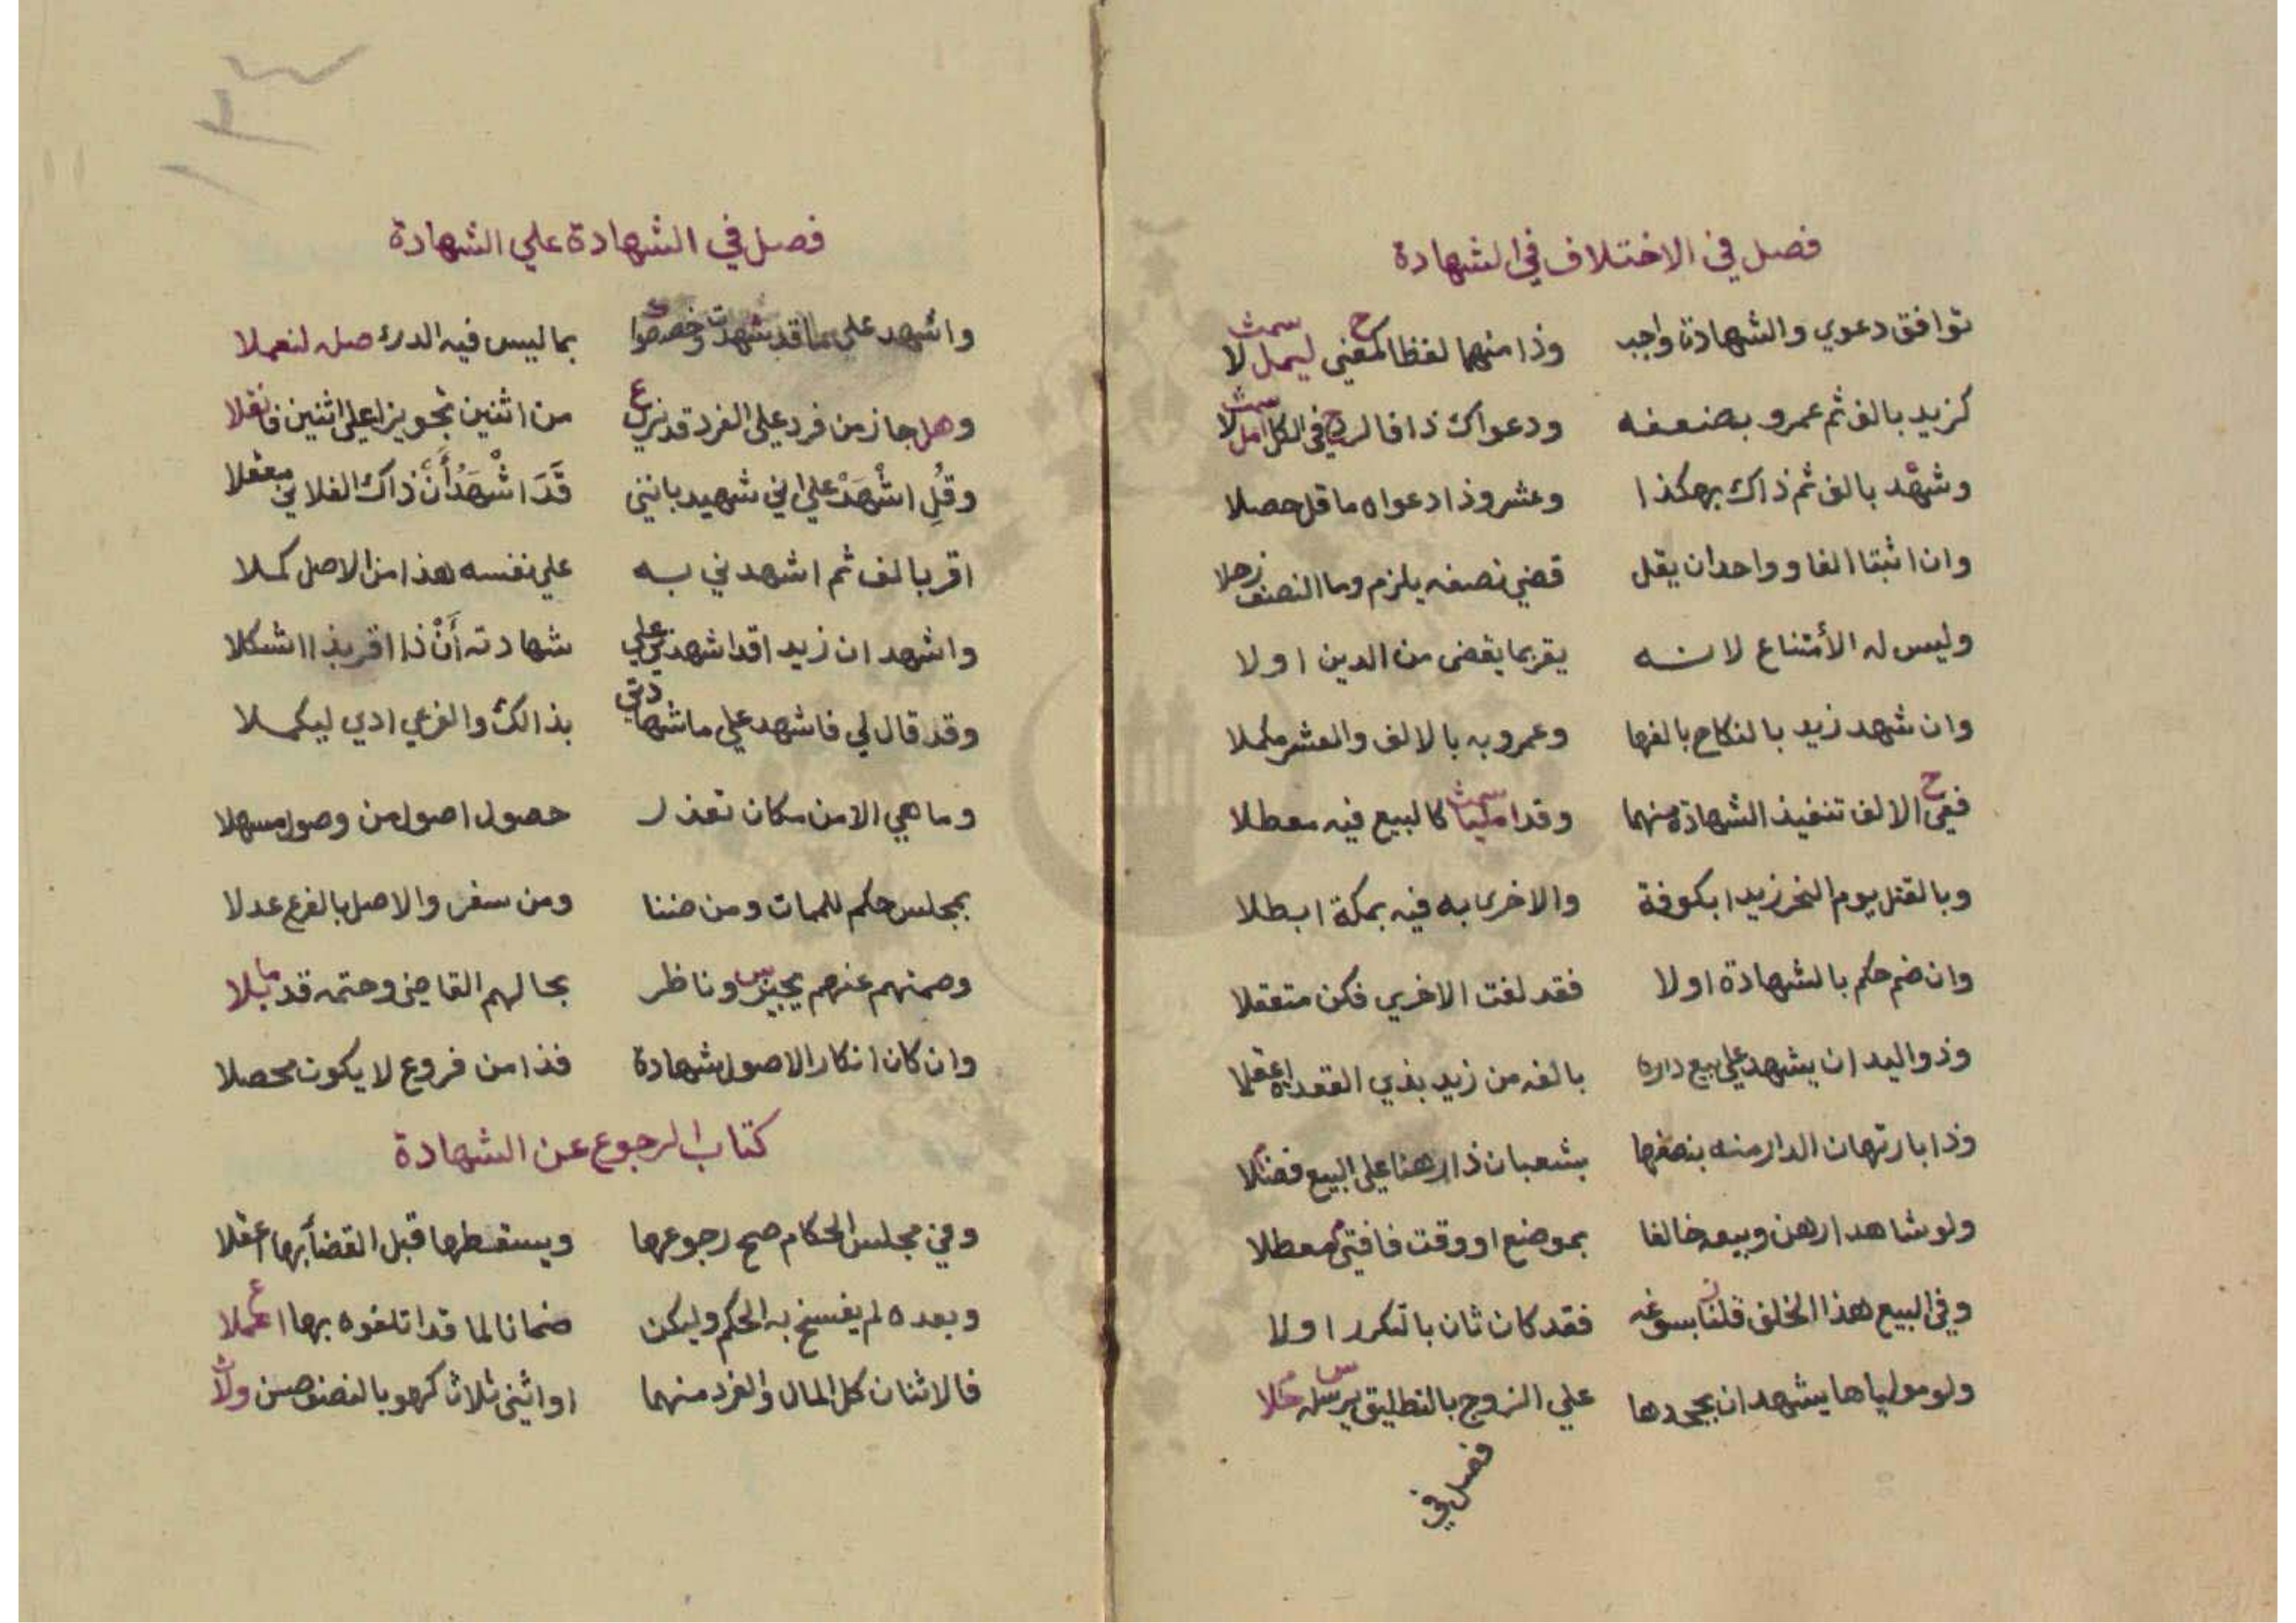 فصل في الاختلاف في الشهادة
توافق دعوي والشهادة واجب وذا منهما لفظا لمعني ليمل لا
كزيد بالف ثم عمرو بضعفه ودعواك ذا فالرد في الكل امل لا
وشهد بالف ثم ذاك بهكذا وعشر وذا دعواه ما قل حصلا
وان اثبتا الفا وواحد ان يقل قضي نصفه يلزم وما النصف زحلا
وليس له الأمتناع لانه يقر بما يقضى من الدين اولا
وان شهد زيد بالنكاح بالفها وعمرو به بالالف والعشر مكملا
ففي الالف تنفيذ الشهادة منهما وقد امليا كالبيع فيه معطلا
وبالقتل يوم النحر زيدا بكوفة والاخرى به فيه بمكة ابطلا
وان ضم حكم بالشهادة اولا فقد لغت الاخري فكن متعقلا
وذو اليد ان يشهد علي بيع داره بالفه من زيد بذي القعده اعقلا
وذا بارتهان الدار منه بنصفها بشعبان ذا رهنا علي البيع فضلا
ولو شاهدا رهن وبيع خالفا بموضع او وقت فافتي معطلا
وفي البيع هذا الخلف قلنا بسوغه فقد كان ثان بالتكرر اولا
ولو مولياها يشهد ان بجحدها علي الزوج بالتطليق يرسله حلا
فصل في
فصل في الشهادة علي الشهادة
واشهد علي ما قد شهدت وخصصوا بما ليس فيه الدرء صله لنعملا
وهل جاز من فرد علي الفرد قد نرى من اثنين تجويزا علي اثنين فانقلا
وقُلِ اشْهَدْ علي اني شهيد بانني قَدَ اشْهَدُ أَنَّ ذاك الفلاني بعقلا
اقر بالف ثم اشهدني به علي نفسه هذا من الاصل كملا
واشهد ان زيدا قد اشهدني علي شهادته أَنْ ذا اقر بذا اشكلا
وقد قال لي فاشهد علي ما شهادتي بذالك والفرعي ادي ليكملا
وما هي الا من مكان تعذر حصول اصول من وصول مسهلا
بمجلس حكم للممات ومن ضننا ومن سفر والاصل بالفرع عدلا
وصمتهم عنهم يجيز وناظر بحالهم القاضي وحتمه قد بلا
وان كان انكار الاصول شهادة فذا من فروع لا يكون محصلا
كتاب الرجوع عن الشهادة
وفي مجلس الحكام صح رجوعها ويسقطها قبل القضاء بها اعقلا
وبعده لم يفسخ به الحكم وليكن ضمانا لما قد اتلفوه بها اعملا
فالاثنان كل المال والفرد منهما او اثني ثلاث كرهو بالنصف صن ولا